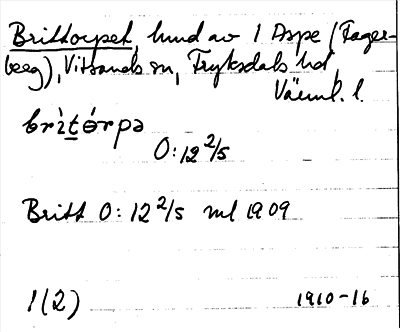 Brittorpet, hmd av 1 Aspe (Fager-
berg), Vitsands sn, Fryksdals hd,
Värml. l.
brìtórpə
O:12 2/5
Britt O: 12 2/5 ml 1909
1(2) 1910-16